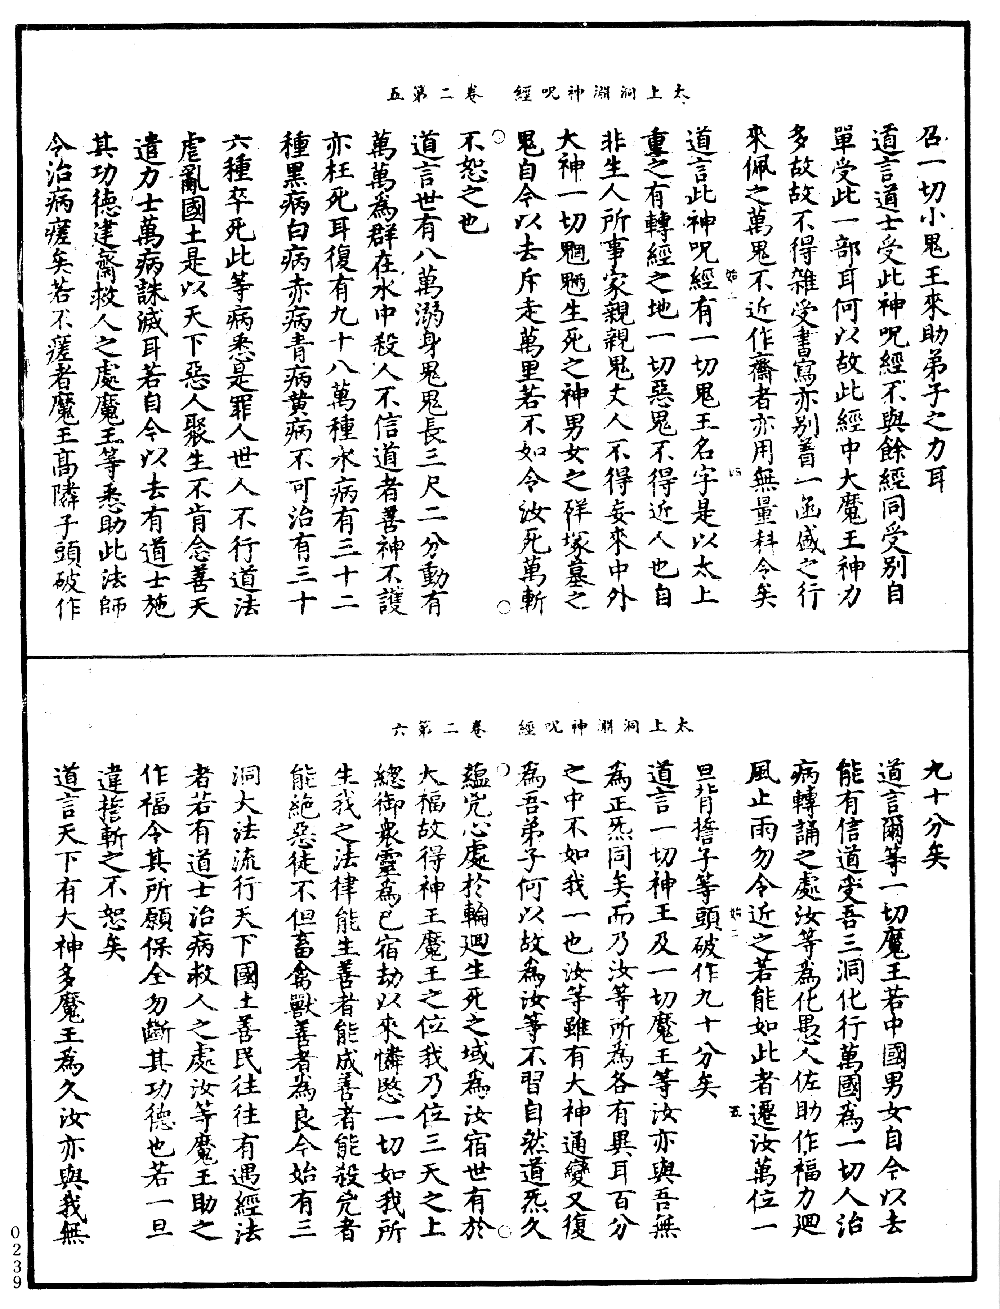 太上洞淵神呪經　卷二第五
召一切小鬼王來助弟子之力耳
道言道士受此神呪經不與餘經同受別自
單受此一部耳何以故此經中大魔王神力
多故故不得雜受書寫亦別著一函盛之行
來佩之萬鬼不近作齋者亦用無量科令矣
道言此神呪經有一切鬼王名字是以太上
重之有轉經之地一切惡鬼不得近人也自
非生人所事家親親鬼丈人不得妄來中外
大神一切魍魎生死之神男女之祥塚墓之
鬼自今以去斥走萬里若不如令汝死萬斬
不恕之也
道言世有八萬溺身鬼鬼長三尺二分動有
萬萬為群在水中殺人不信道者善神不護
亦枉死耳復有九十八萬種水病有三十二
種黑病白病赤病青病黃病不可治有三十
六種卒死此等病悉是罪人世人不行道法
虐亂國土是以天下惡人聚生不肯念善天
遣力士萬病誅滅耳若自今以去有道士施
其功德建齋救人之處魔王等悉助此法師
令治病瘥矣若不瘥者魔王高隣子頭破作
太上洞淵神呪經　卷二第六
九十分矣
道言爾等一切魔王若中國男女自今以去
能有信道受吾三洞化行萬國為一切人治
病轉誦之處汝等為化愚人佐助作福力迴
風止雨勿令近之若能如此者遷汝萬位一
旦背擔子等頭破作九十分矣
道言一切神王及一切魔王等汝亦與吾無
為正炁同矣而乃汝等所為各有異耳百分
之中不如我一也汝等雖有大神通變又復
為吾弟子何以故為汝等不習自然道炁久
蘊兇心處於輪迴生死之域為汝宿世有於
大福故得神王魔王之位我乃位三天之上
總御衆靈為已宿劫以來憐愍一切如我所
生我之法律能生善者能成善者能殺兇者
能絕惡徒不但畜禽獸善者為良今始有三
洞大法流行天下國土善民往往有遇經法
者若有道士治病救人之處汝等魔王助之
作福令其所願保全勿斷其功德也若一旦
違誓斬之不恕矣
道言天下有大神多魔王為久汝亦與我無
0239